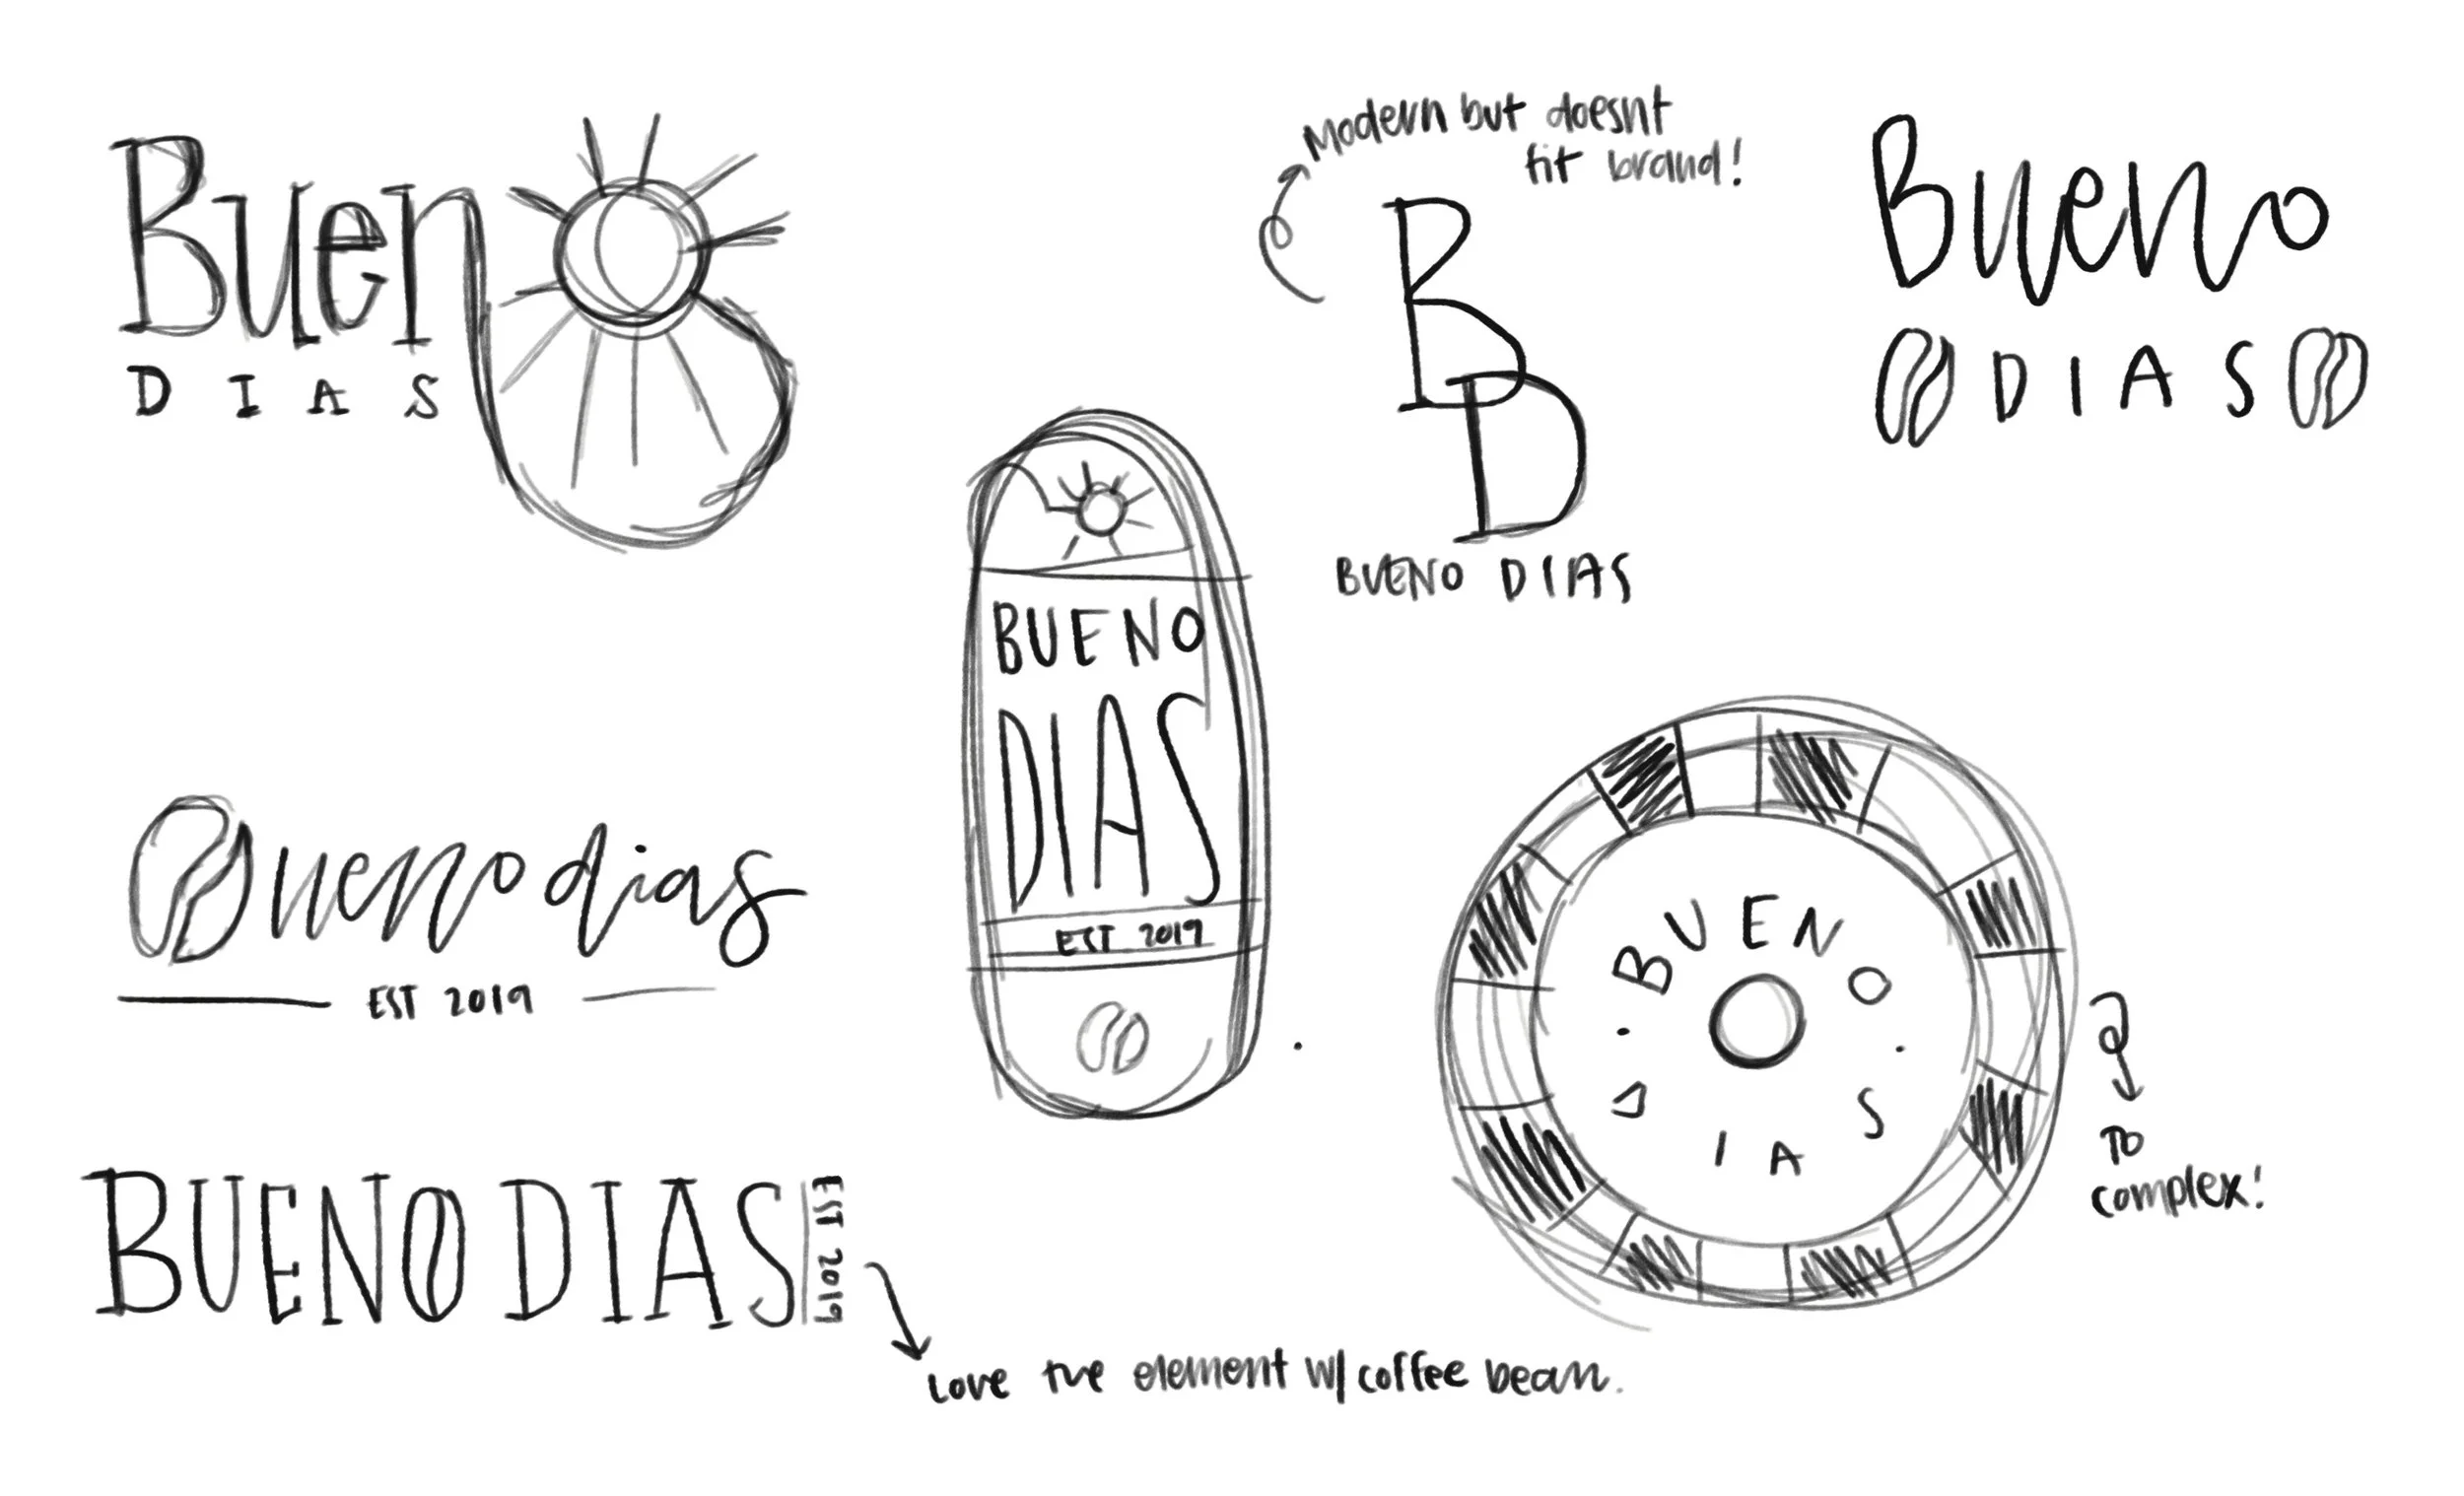 Bueno
DIAS
Modern but doesnt
fit brand!
BD
BUENO DIAS
Bueno
DIAS
BUENO
DIAS
EST 2019
Buenodias
EST 2019
BUENO
DIAS
To
complex!
BUENO DIAS
EST 2019
Love the element w/ coffee bean.